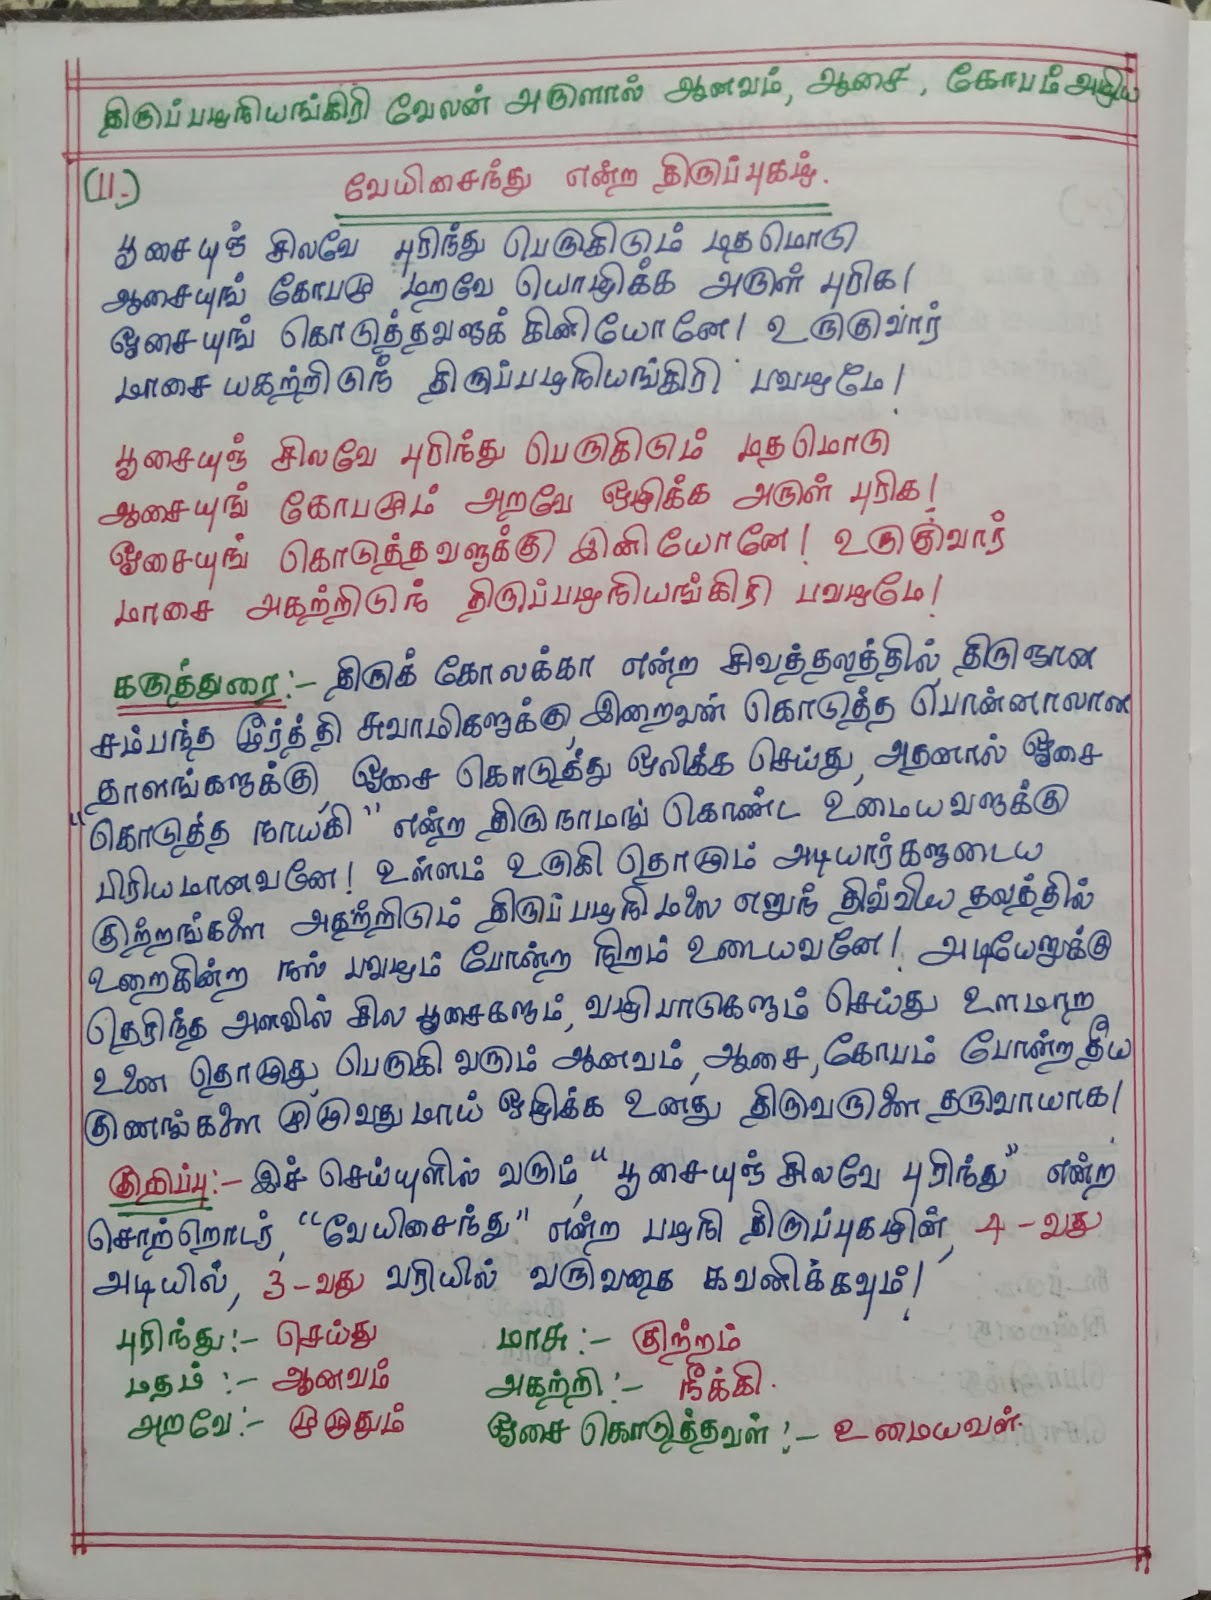 திருப்பழநியங்கிரி வேலன் அருளால் ஆனவம், ஆசை, கோபம் அழிய
(11.) வேயிசைந்து என்ற திருப்புகழ்.
பூசையுஞ் சிலவே புரிந்து பெருகிடும் மதமொடு
ஆசையுங் கோபமு மறவே யொழிக்க அருள் புரிக!
ஓசையுங் கொடுத்தவளுக் கினியோனே! உருகுவார்
மாசை யகற்றிடுந் திருப்பழநியங்கிரி பவழமே!
பூசையுஞ் சிலவே புரிந்து பெருகிடும் மதமொடு
ஆசையுங் கோபமும் அறவே ஒழிக்க அருள் புரிக!
ஓசையுங் கொடுத்தவளுக்கு இனியோனே! உருகுவார்
மாசை அகற்றிடுந் திருப்பழநியங்கிரி பவழமே!
கருத்துரை:- திருக் கோலக்கா என்ற சிவத்தலத்தில், திருஞான
சம்பந்த மூர்த்தி சுவாமிகளுக்கு, இறைவன் கொடுத்த பொன்னாலான
தாளங்களுக்கு, ஓசை கொடுத்து ஒலிக்க செய்து, அதனால் ஓசை
"கொடுத்த நாயகி" என்ற திருநாமங் கொண்ட உமையவளுக்கு
பிரியமானவனே! உள்ளம் உருகி தொழும் அடியார்களுடைய
குற்றங்களை அகற்றிடும் திருப்பழநிமலை எனுந் திவ்விய தலத்தில்
உறைகின்ற நல் பவழம் போன்ற நிறம் உடையவனே! அடியேனுக்கு
தெரிந்த அளவில் சில பூசைகளும், வழிபாடுகளும் செய்து உளமாற
உனை தொழுது, பெருகி வரும் ஆனவம், ஆசை, கோபம் போன்ற தீய
குணங்களை முழுவதுமாய் ஒழிக்க உனது திருவருளை தருவாயாக!
குறிப்பு:- இச் செய்யுளில் வரும், "பூசையுஞ் சிலவே புரிந்து" என்ற
சொற்றொடர், "வேயிசைந்து" என்ற பழநி திருப்புகழின், 4-வது
அடியில், 3-வது வரியில் வருவதை கவனிக்கவும்!
புரிந்து:- செய்து மாசு:- குற்றம்
மதம்:- ஆனவம் அகற்றி:- நீக்கி.
அறவே:- முழுதும் ஓசை கொடுத்தவள்:- உமையவள்.